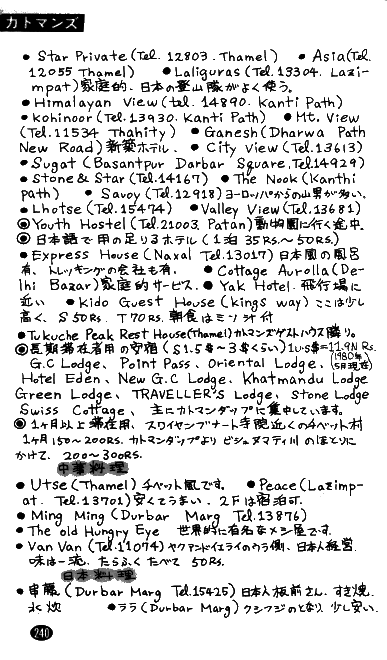 カトマンズ
● Star Private (Tel. 12803. Thamel) ● Asia (Tel.
12055 Thamel) ● Laliguras (Tel. 13304. Lazi-
mpat) 家庭的、日本の登山隊がよく使う。
● Himalayan View (tel. 14890. Kanti Path)
● Kohinoor (Tel. 13930. Kanti Path) ● Mt. View
(Tel. 11534 Thahity) ● Ganesh (Dharwa Path
New Road) 新築ホテル. ● City View (Tel. 13613)
● Sugat (Basantpur Darbar Square, Tel. 14929)
● Stone & Star (Tel. 14167) ● The Nook (Kanthi
path) ● Savoy (Tel. 12918) ヨーロッパからの山男が多い.
● Lhotse (Tel. 15474) ● Valley View (Tel. 13681)
◉ Youth Hostel (Tel. 21003, Patan) 動物園に行く途中.
◉ 日本語で用の足りるホテル (1泊 35Rs.〜50Rs.)
● Express House (Naxal Tel. 13017) 日本風の風呂
有、トレッキングの会社も有. ● Cottage Aurolla (De-
lhi Bazar) 家庭的サービス. ● Yak Hotel. 飛行場に
近い ● Kido Guest House (Kings way) ここは少し
高く、S 50Rs. T 70Rs. 朝食はミソ汁付
● Tukuche Peak Rest House (Thamel) カトマンズゲストハウス隣り。
◉ 長期滞在者用の安宿 (S1.5$〜3$くらい) 1US$=11.9N Rs.
(1980年5月現在)
G.C Lodge、Point Pass、Oriental Lodge、
Hotel Eden、New G.C Lodge、Khatmandu Lodge
Green Lodge、TRAVELLER'S Lodge、Stone Lodge
Swiss Cottage、主にカトマンダップに集中しています。
◉ 1ヶ月以上滞在用、スワイヤンブナート寺院近くのチベット村
1ヶ月 150〜200RS. カトマンダップより ビシュヌマティ川 のほとりに
かけて、200〜300RS.
中華料理
● Utse (Thamel) チベット風です。 ● Peace (Lazimp-
at. Tel. 13701) 安くてうまい. 2Fは宿泊可.
● Ming Ming (Durbar Marg Tel. 13876)
● The old Hungry Eye 世界的に有名なメシ屋です.
● Van Van (Tel. 11074) ヤクアンドイエティのウラ側、日本人経営.
味は一流. たらふく たべて 50Rs.
日本料理
● 串藤 (Durbar Marg Tel. 15425) 日本人板前さん. すき焼.
水炊 ● ララ (Durbar Marg) クシフジのとなり 少し安い.
240